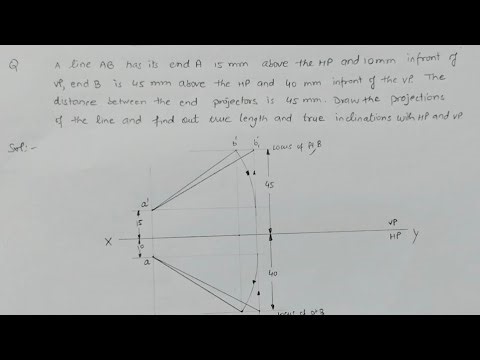 Q A line AB has its end A 15 mm above the HP and 10mm infront of
VP, end B is 45 mm above the HP and 40 mm infront of the VP. The
distance between the end projectors is 45 mm. Draw the projections
of the line and find out true length and true inclinations with HP and VP
Sol:-
b' b'₁ locus of Pt B
a'
15
45
X VP Y
HP
10
a
40
locus of Pt B